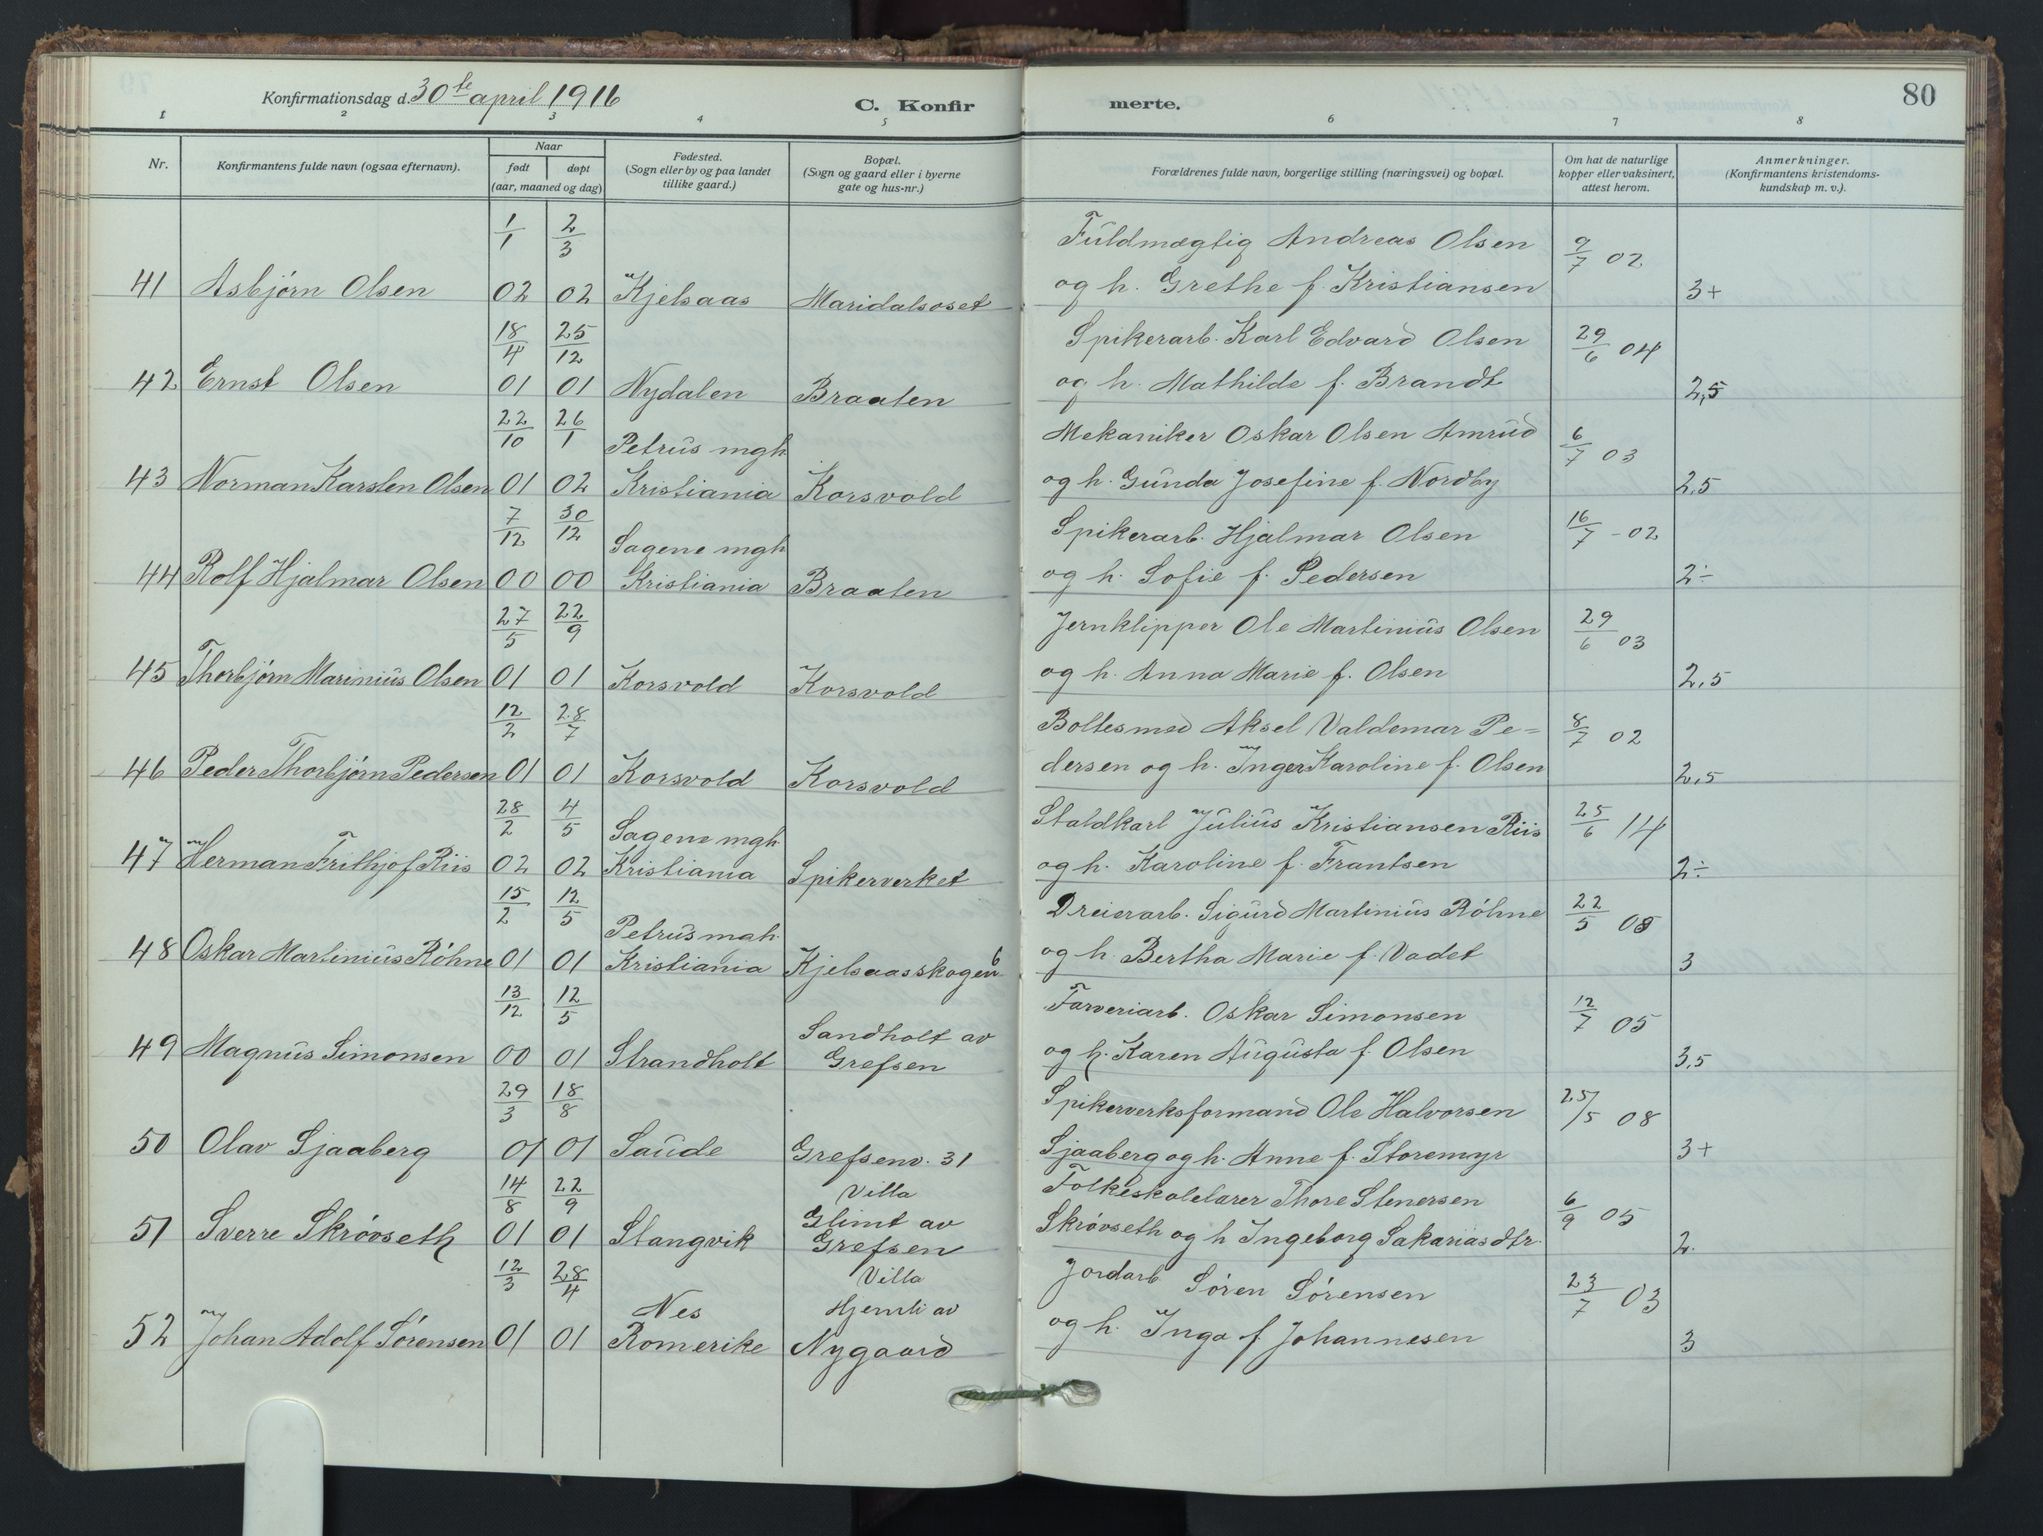 Konfirmationsdag d. 30te april 1916
C. Konfir merte. 80
1 2 3 4 5 6 7 8
Nr. Konfirmantens fulde navn (ogsaa efternavn). Naar født døpt (aar, maaned og dag) Fødested. (Sogn eller by og paa landet tillike gaard.) Bopæl. (Sogn og gaard eller i byerne gate og hus-nr.) Forældrenes fulde navn, borgerlige stilling (næringsvei) og bopæl. Om hat de naturlige kopper eller vaksinert, attest herom. Anmerkninger. (Konfirmantens kristendoms- kundskap m. v.).
1/1 2/3 Fuldmægtig Andreas Olsen 9/7 02
41 Asbjørn Olsen 02 02 Kjelsaas Maridalsoset og h. Grethe f. Kristiansen 3+
18/4 25/12 Spikerarb. Karl Edvard Olsen 29/6 04
42 Ernst Olsen 01 01 Nydalen Braaten og h. Mathilde f. Brandt 2,5
22/10 26/1 Petrus mgh. Mekaniker Oskar Olsen Amrud 6/7 03
43 Norman Karsten Olsen 01 02 Kristiania Korsvold og h. Gunda Josefine f. Nordby 2,5
7/12 30/12 Sagene mgh Spikerarb. Hjalmar Olsen 16/7 - 02
44 Rolf Hjalmar Olsen 00 00 Kristiania Braaten og h. Sofie f. Pedersen 2÷
27/5 22/9 Jernklipper Ole Martinius Olsen 29/6 03
45 Thorbjørn Marinius Olsen 01 01 Korsvold Korsvold og h. Anna Marie f. Olsen 2,5
12/2 28/7 Boltesmed Aksel Valdemar Pe= 8/7 02
46 Peder Thorbjørn Pedersen 01 01 Korsvold Korsvold dersen og h. Inger Karoline f. Olsen 2,5
28/2 4/5 Sagene mgh. Staldkarl Julius Kristiansen Riis 25/6 14
47 Herman Frithjof Riis 02 02 Kristiania Spikerverket og h. Karoline f. Frantsen 2÷
15/2 12/5 Petrus mgh. Dreierarb. Sigurd Martinius Røhne 22/5 05
48 Oskar Martinius Røhne 01 01 Kristiania Kjelsaasskogen 6 og h. Bertha Marie f. Vadet 3
13/12 12/5 Sandholt av Farveriarb. Oskar Simonsen 12/7 05
49 Magnus Simonsen 00 01 Strandholt Grefsen og h. Karen Augusta f. Olsen 3,5
29/3 18/8 Spikerverksformand Ole Halvorsen 25/5 08
50 Olav Sjaaberg 01 01 Saude Grefsenv. 31 Sjaaberg og h. Anne f. Storemyr 3+
14/8 22/9 Villa Glimt av Folkeskolelærer Thore Stenersen 6/9 05
51 Sverre Skrøvseth 01 01 Stangvik Grefsen Skrøvseth og h Ingeborg Sakariasdtr. 2.
12/3 28/4 Nes Villa Hjemli av Jordarb Søren Sørensen 23/7 03
52 Johan Adolf Sørensen 01 01 Romerike Nygaard og h. Inga f. Johannesen 3